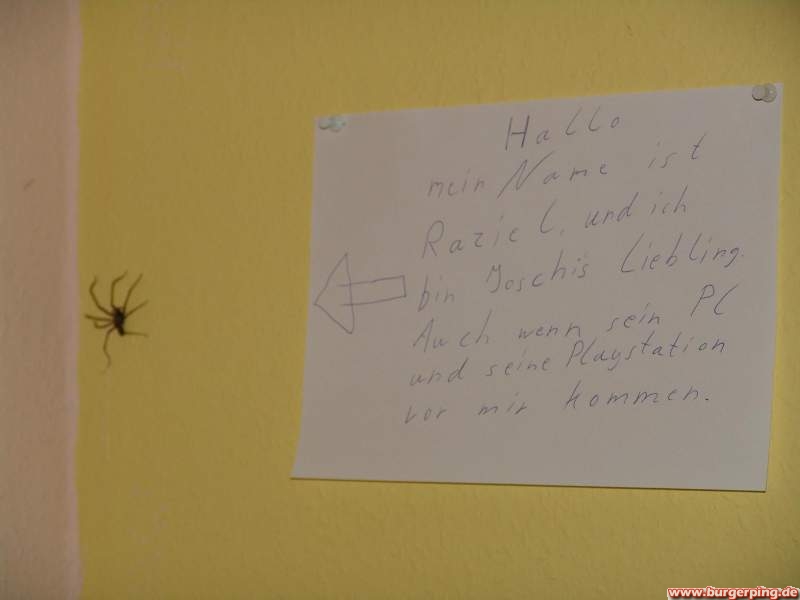 Hallo
mein Name ist
Raziel, und ich
bin Joschis Liebling.
Auch wenn sein PC
und seine Playstation
vor mir kommen.
www.burgerping.de